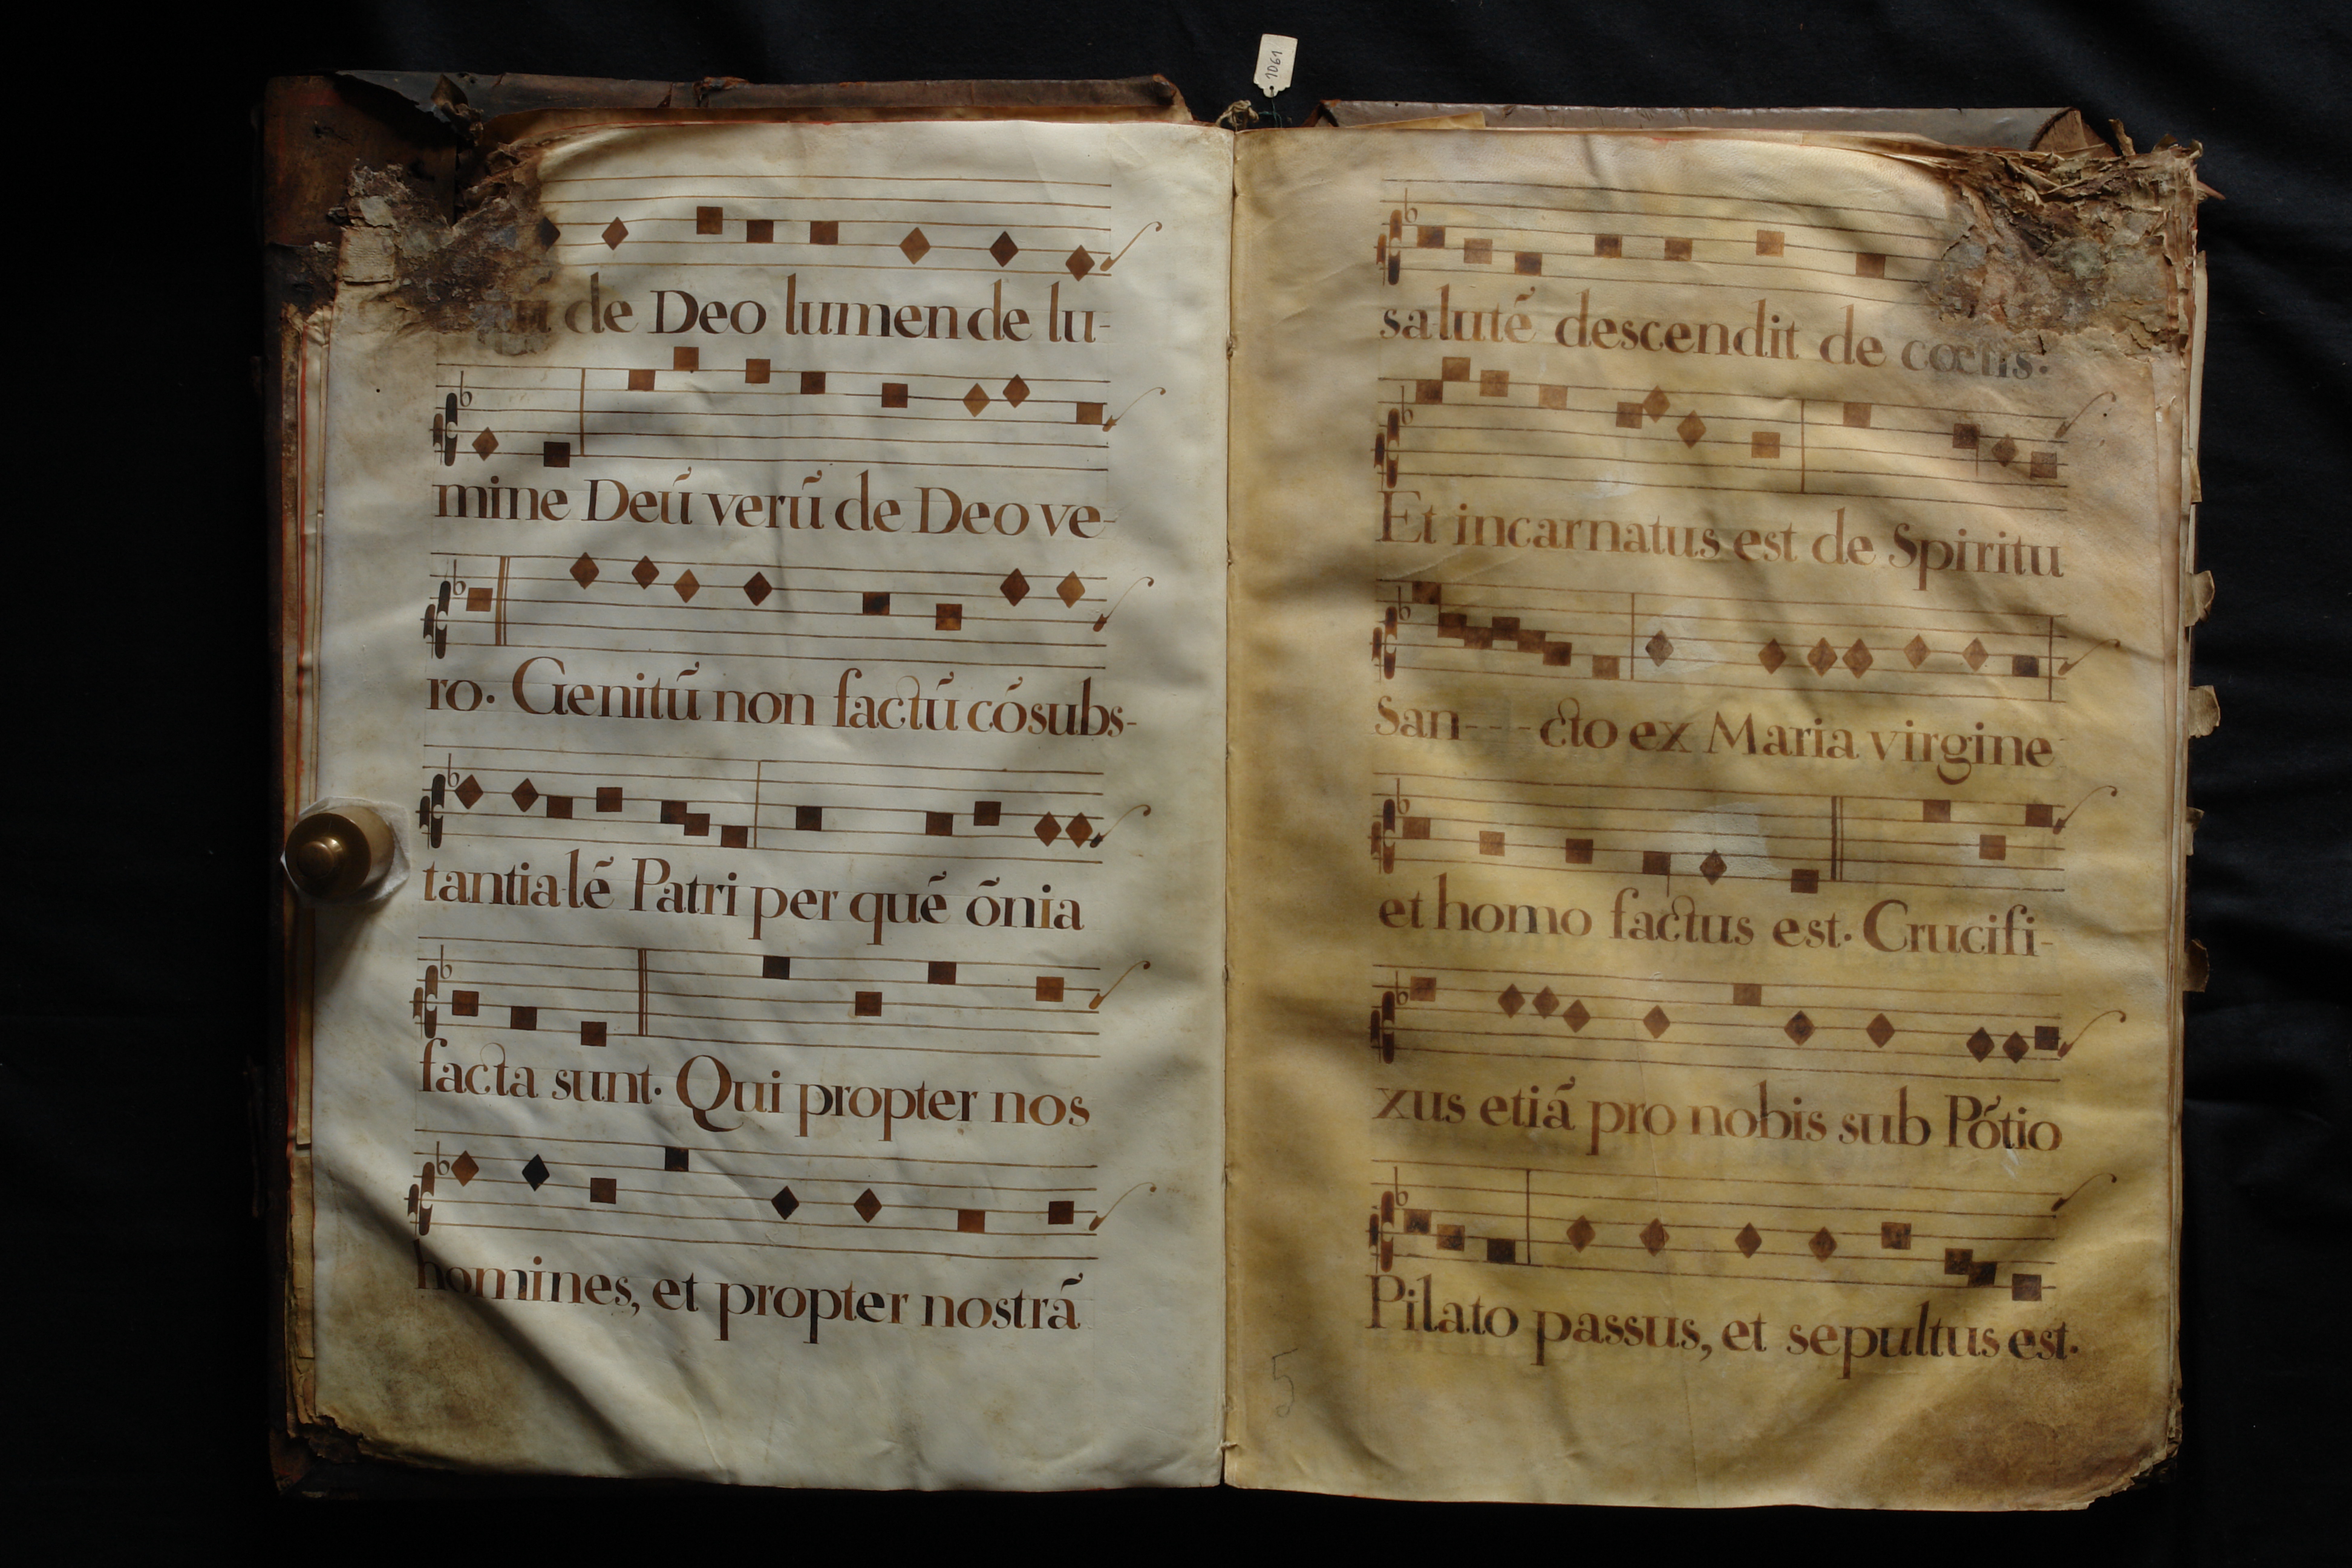 1061
de Deo lumen de lu-
mine Deũ verũ de Deo ve-
ro. Genitũ non factũ cõsubs-
tantialẽ Patri per quẽ õnia
facta sunt. Qui propter nos
homines, et propter nostrã
salutẽ descendit de cœlis:
Et incarnatus est de Spiritu
San---cto ex Maria virgine
et homo factus est. Crucifi-
xus etiã pro nobis sub Põtio
Pilato passus, et sepultus est.
5